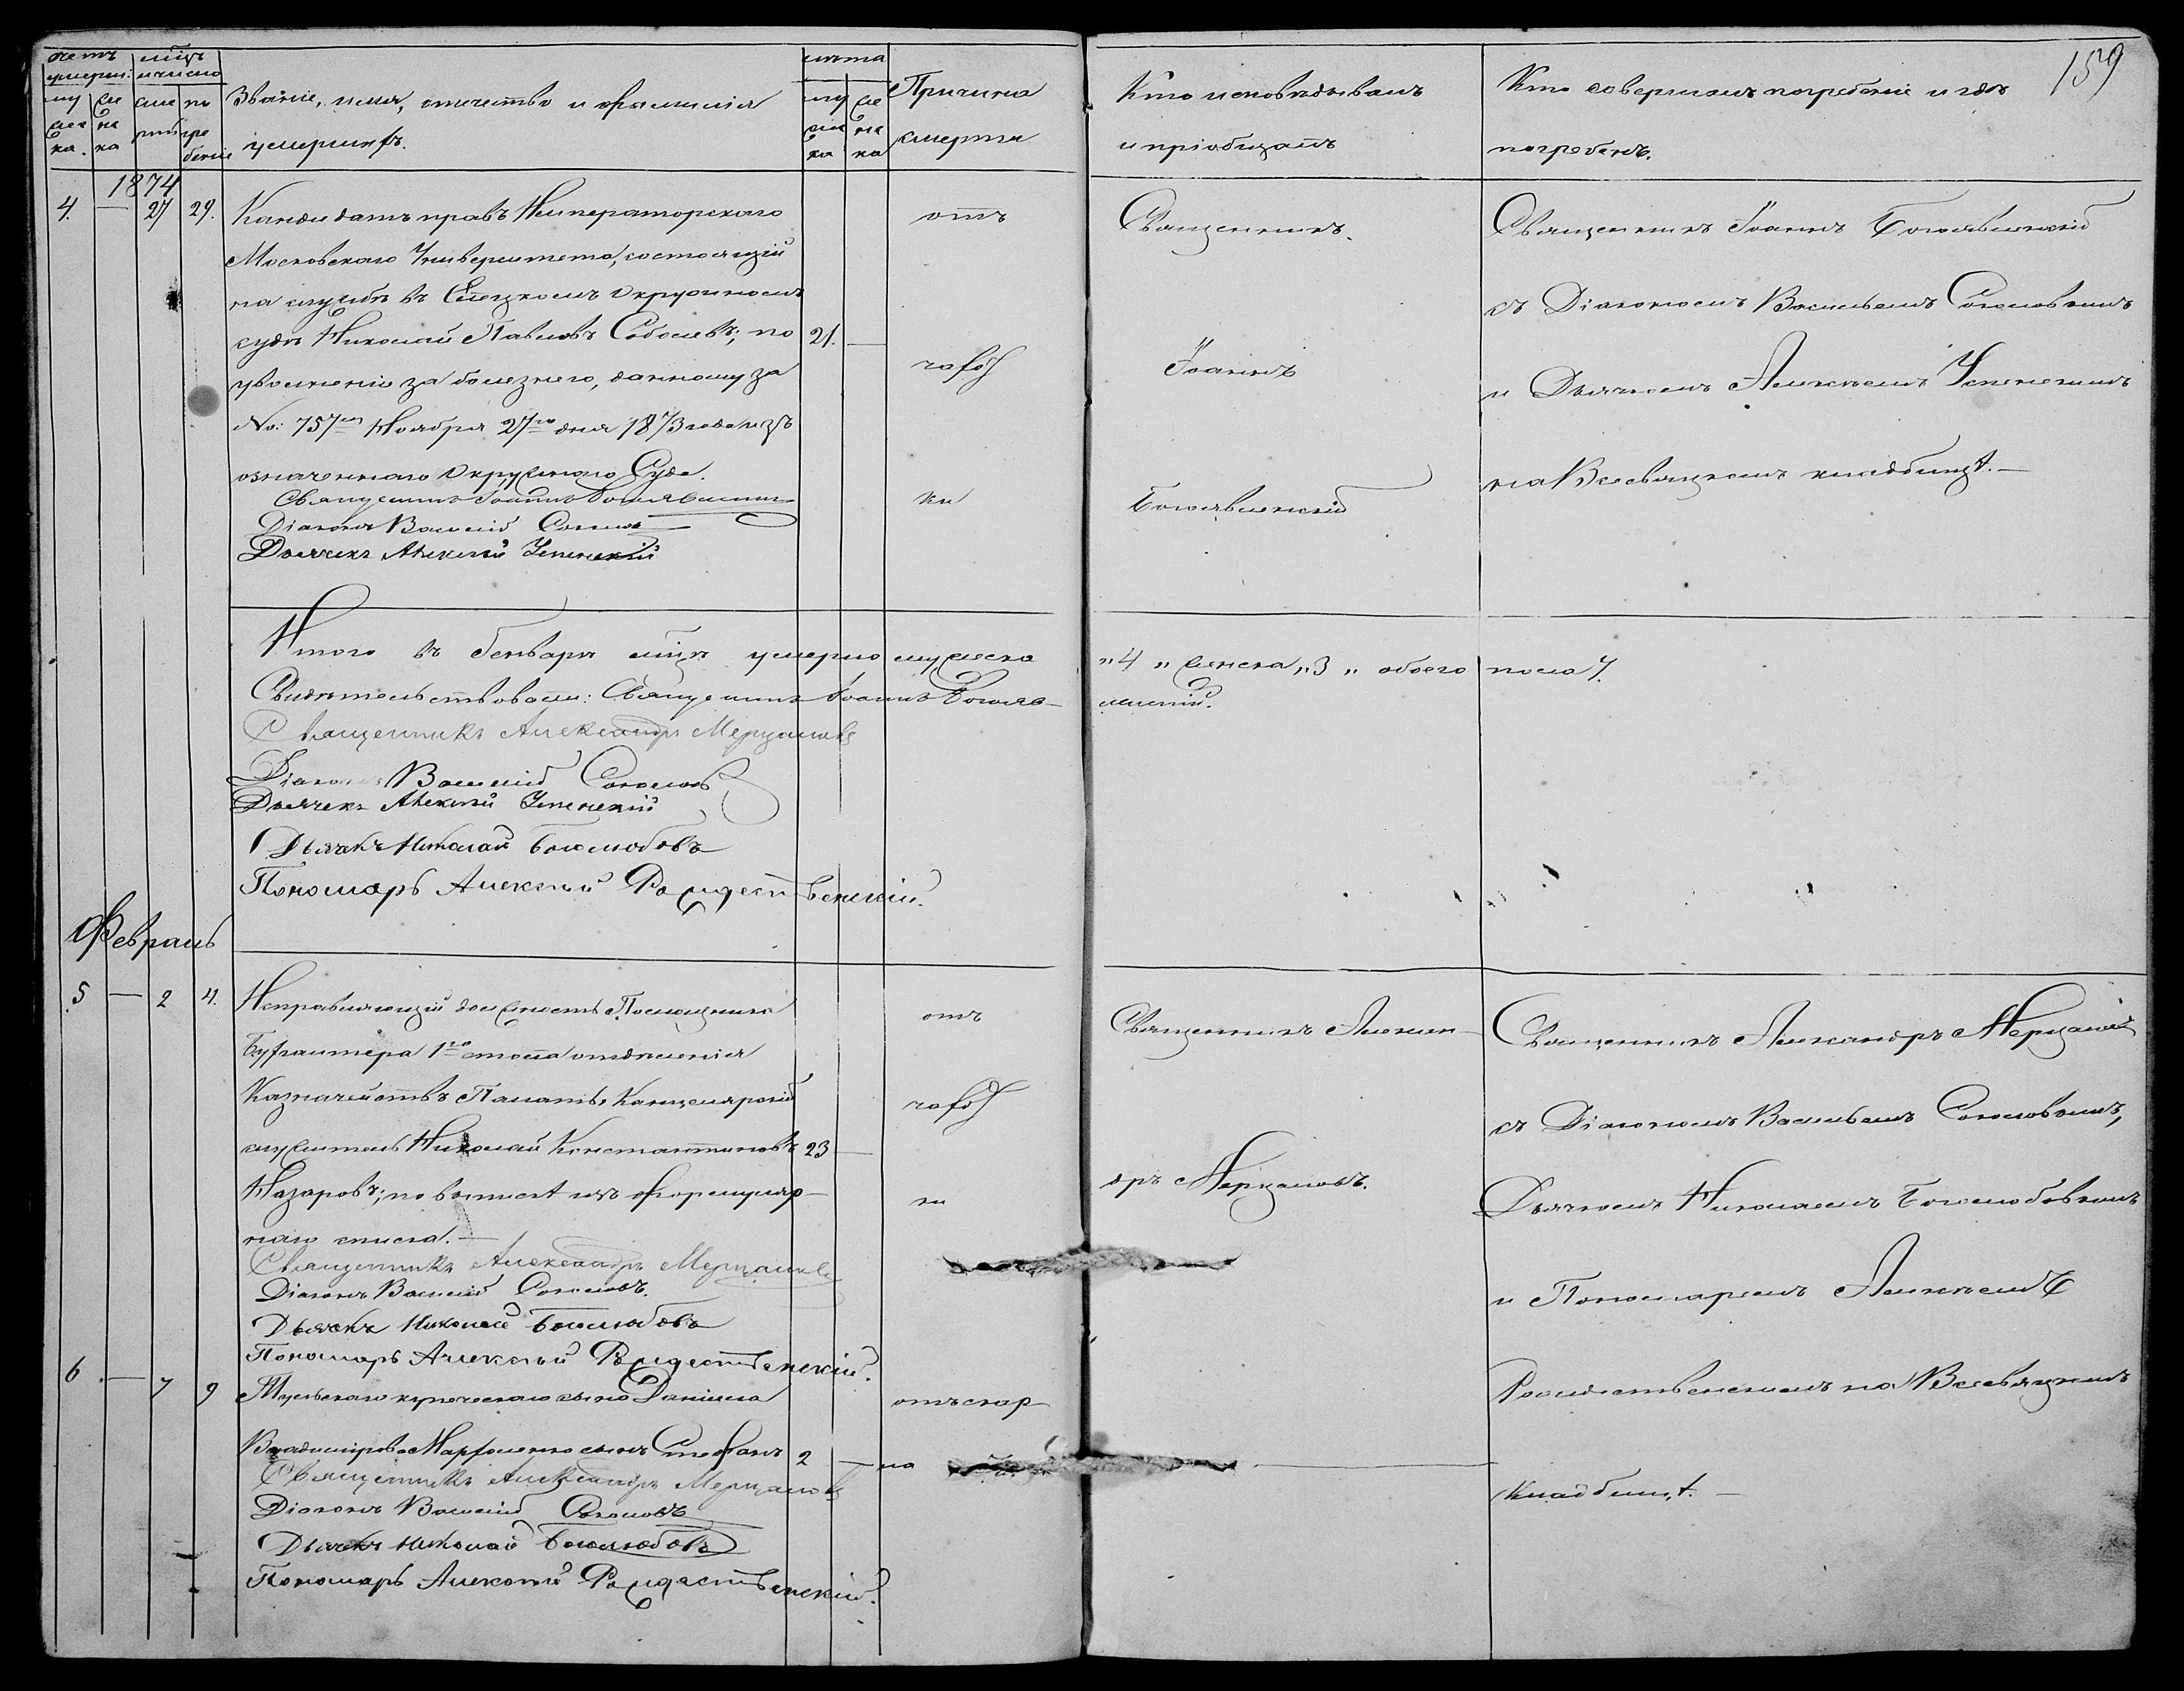 159
счетъ умерш:
мѣсц. и число
Званіе, имя, отчество и фамилія
умершихъ.
лѣта
Причина
смерти
Кто исповѣдывалъ
и пріобщалъ
Кто совершалъ погребеніе и гдѣ
погребенъ.
мужеска. женска
смерти погребенія
мужеска женска
1874
4. — 27 29. Кандидатъ правъ Императорскаго
Московскаго Университета, состоящій
на службѣ въ Елецкомъ Окружномъ
судѣ Николай Павловъ Соболевъ; по 21. —
увольненію за болезнею, данному за
No: 757мъ Ноября 27го дня 1873 года изъ
означеннаго Окружнаго Суда.
Священникъ Іоаннъ Богоявленскій
Діаконъ Василій Соколовъ
Дьячекъ Алексѣй Успенскій
отъ
чахот
ки
Священникъ
Іоаннъ
Богоявленскій
Священникъ Іоаннъ Богоявленскій
съ Діакономъ Васильемъ Соколовымъ
и Дьячкомъ Алексѣемъ Успенскимъ
на Всесвятскомъ кладбищѣ. —
Итого въ Генварѣ мѣсцѣ умерло мужеска „4„ женска „3„ обоего пола 7.
Свидѣтельствовали: Священникъ Іоаннъ Богоявленскій.
Священникъ Александръ Мерцаловъ
Діаконъ Василій Соколовъ
Дьячекъ Алексѣй Успенскій
Дьячекъ Николай Боголюбовъ
Пономарь Алексѣй Рождественскій.
Февраль
5 — 2 4. Исправляющій должность Помощника
Бухгалтера 1го стола отдѣленія
Казначействъ Палаты, Канцелярскій
служитель Николай Константиновъ 23 —
Назаровъ; по выпискѣ изъ формуляр-
наго списка. —
Священникъ Александръ Мерцаловъ
Діаконъ Василій Соколовъ.
Дьячекъ Николай Боголюбовъ
Пономарь Алексѣй Рождественскій.
отъ
чахот
ки
Священникъ Алексан-
дръ Мерцаловъ.
Священникъ Александръ Мерцаловъ
съ Діакономъ Васильемъ Соколовымъ,
Дьячкомъ Николаемъ Боголюбовымъ
и Пономаремъ Алексѣемъ
Рождественскимъ на Всесвятскомъ
кладбищѣ. —
6. — 7 9 Тульскаго купеческаго сына Даніила
Владимірова Марфенко сынъ Стефанъ 2 —
Священникъ Александръ Мерцаловъ
Діаконъ Василій Соколовъ
Дьячекъ Николай Боголюбовъ
Пономарь Алексѣй Рождественскій.
отъ скар